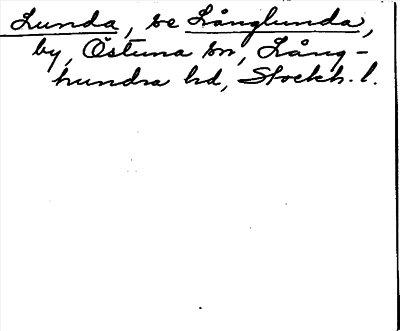 Lunda, se Långlunda,
by, Östuna sn, Lång-
hundra hd, Stockh. l.